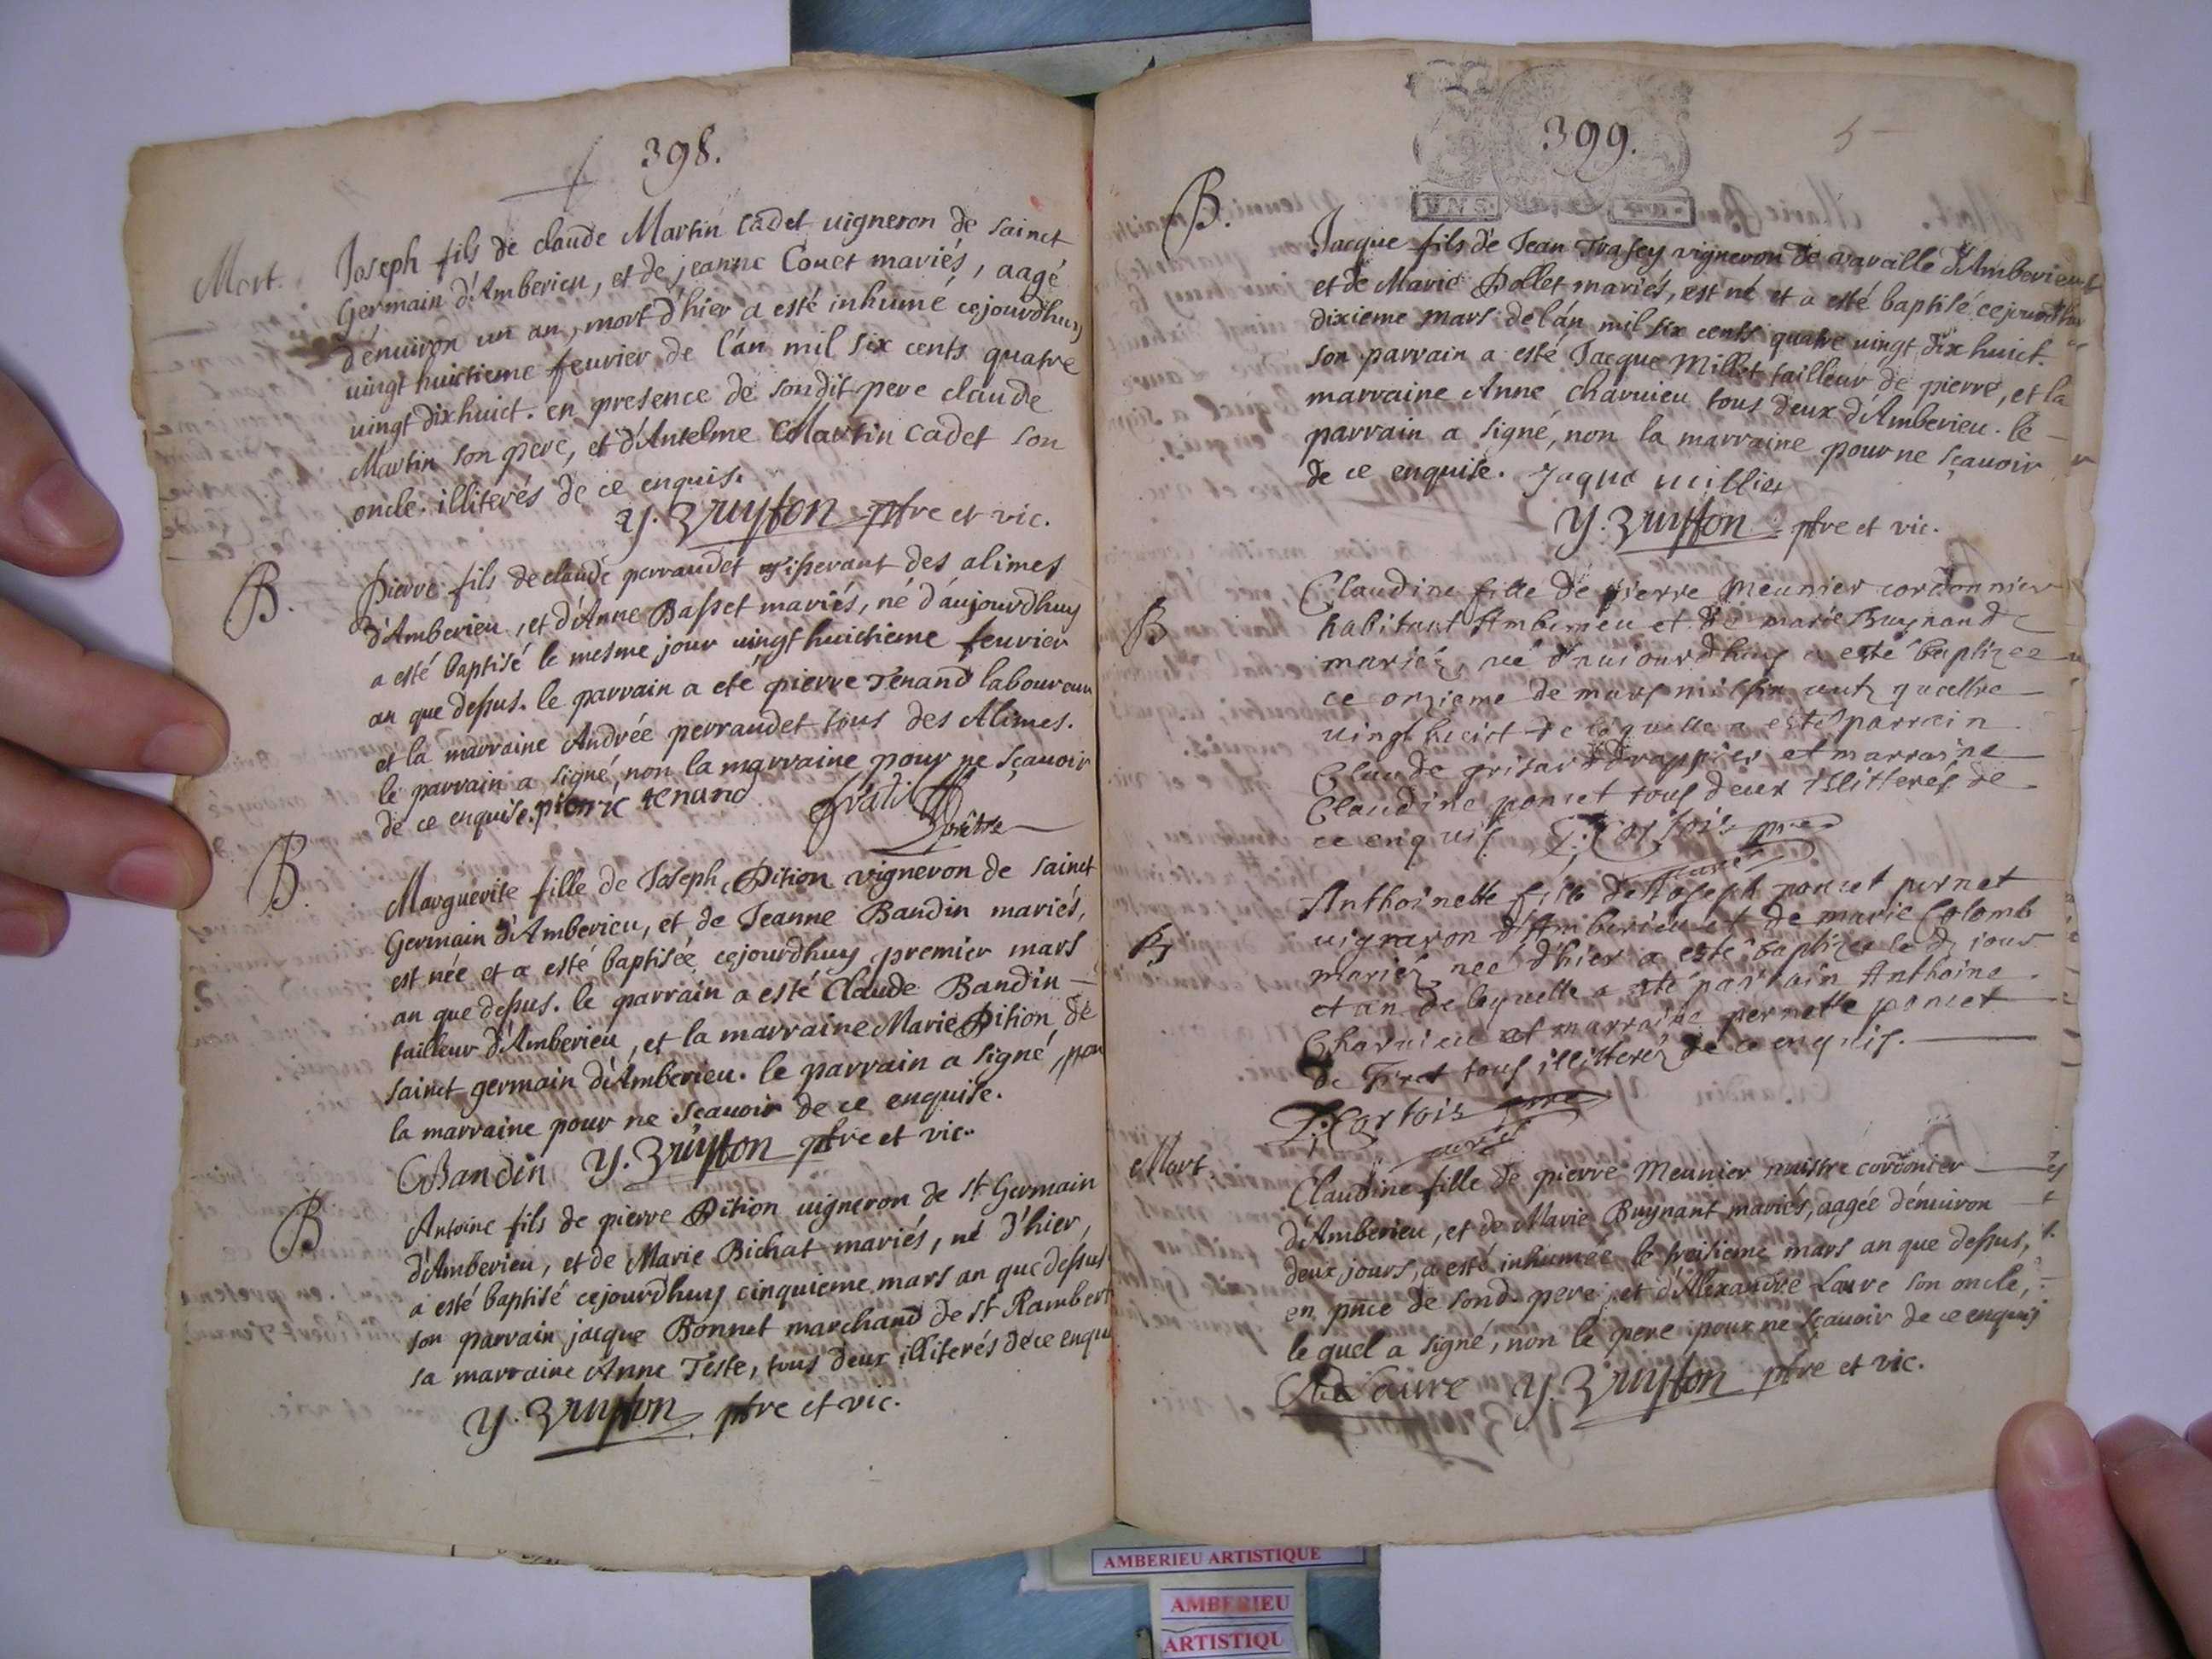 398.
Mort.
Joseph fils de claude Martin cadet uigneron de sainct
Germain d'Amberieu, et de jeanne Couet mariés, aagé
d'enuiron un an, mort d'hier a esté inhumé cejourdhuy
uingt huictieme feurier de l'án mil six cents quatre
uingt dixhuict. en presence de sondit pere claude
Martin son pere, et d'Antelme Martin cadet son
oncle. illiterés de ce enquis.
ptre et vic.
B.
Pierre fils de claude perraudet des alimes
d'Amberieu, et d'Anne Basset mariés, né d'aujourdhuy
a esté baptisé le mesme jour uingt huictieme feurier
an que dessus. le parrain a eté pierre Tenand laboureur
et la marraine Andrée perraudet tous des Alimes.
le parrain a signé, non la marraine pour ne sçauoir
de ce enquise. pierre tenand
B.
Marguerite fille de Joseph Pition vigneron de sainct
Germain d'Amberieu, et de Jeanne Bandin mariés,
est née et a esté baptisée cejourdhuy premier mars
an que dessus. le parrain a esté Claude Bandin
tailleur d'Amberieu, et la marraine Marie Pition de
sainct germain d'Amberieu. le parrain a signé, non
la marraine pour ne sçauoir de ce enquise.
CBandin ptre et vic.
B
Antoine fils de pierre Pition uigneron de st Germain
d'Amberieu, et de Marie Bichat mariés, né d'hier,
a esté baptisé cejourdhuy cinquieme mars an que dessus
son parrain jacque Bonnet marchand de st Rambert
sa marraine Anne Teste, tous deux illiterés de ce enqu
ptre et vic.
399.
5
B.
Jacque fils de Jean Trafey vigneron de vareille d'Amberieu
et de Marie Pollet mariés, est né et a esté baptisé cejourdhuy
dixieme mars de l'án mil six cents quatre uingt dix huict.
son parrain a esté Jacque Millet tailleur de pierre, et la
marraine Anne charuieu tous deux d'Amberieu. le
parrain a signé, non la marraine pour ne sçauoir
de ce enquise. Jaque millier
ptre et vic.
B
Claudine fille de pierre meunier cordonnier
habitant Amberieu et de marie Buynand
mariés, neé d'auiourdhuy a esté baptizee
ce onzieme de mars mil six cents quattre
uingt huict de laquelle a esté parrain
Claude grisard drappier et marraine
Claudine poncet tous deux Illitterés de
ce enquis.
B
Anthoinette fille de Joseph poncet pernet
uigneron d'Amberieu et de marie Colomb
mariéz neé d'hier a esté baptizee le d. jour
et an de laquelle a esté parrain Anthoine
Charuieu et marraine pernette poncet
de Tiret tous illitterés de ce enquis.
Mort.
Claudine fille de pierre Meunier maistre cordonier
d'Amberieu, et de Marie Buynant mariés, aagée d'enuiron
deux jours, a esté inhumée le treisieme mars an que dessus,
en pnce de sond. pere, et d'Alexandre Laure son oncle,
le quel a signé, non le pere pour ne sçauoir de ce enquis
Laure ptre et vic.
AMBERIEU ARTISTIQUE
AMBERIEU
ARTISTIQU